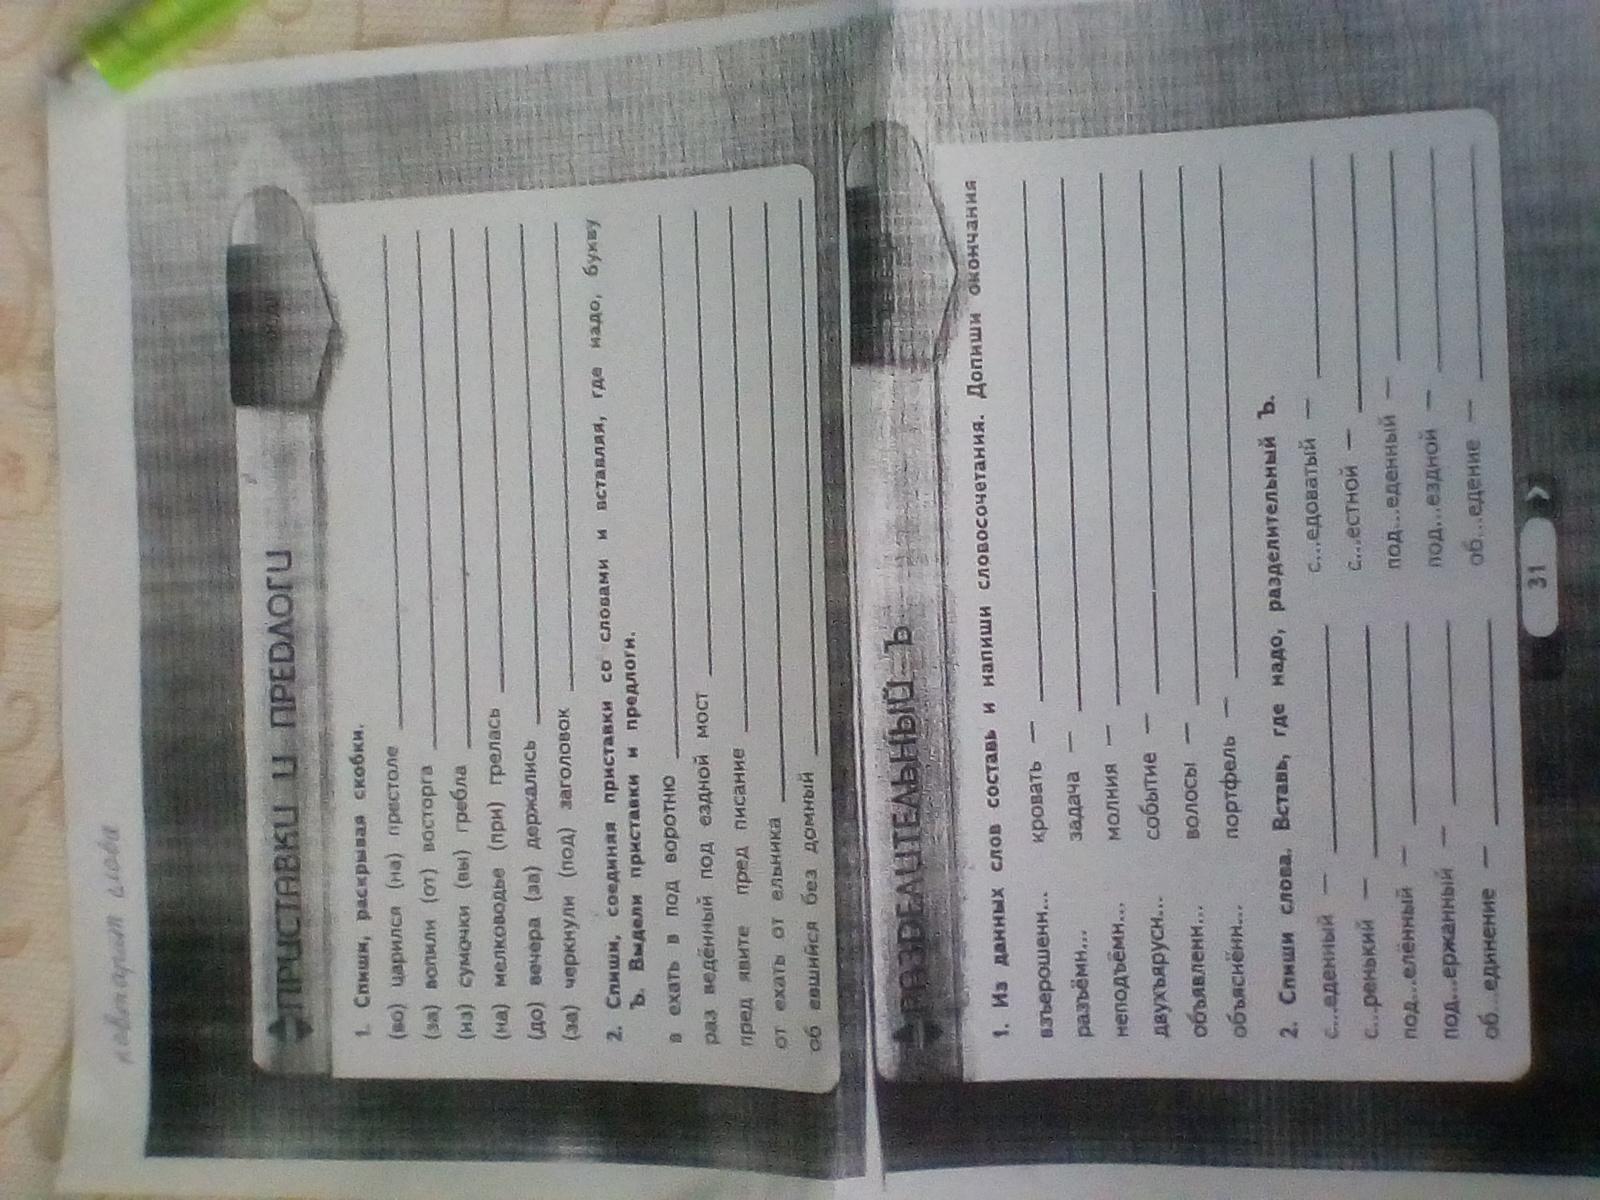 ПРИСТАВКИ И ПРЕДЛОГИ
1. Спиши, раскрывая скобки.
(во) царился (на) престоле
(за) вопили (от) восторга
(из) сумочки (вы) гребла
(на) мелководье (при) грелась
(до) вечера (за) держались
(за) черкнули (под) заголовок
2. Спиши, соединяя приставки со словами и вставляя, где надо, букву
Ъ. Выдели приставки и предлоги.
в ехать в под воротню
раз ведённый под ездной мост
пред явите пред писание
от ехать от ельника
об евшийся без домный
РАЗДЕЛИТЕЛЬНЫЙ Ъ
1. Из данных слов составь и напиши словосочетания. Допиши окончания
взъерошенн... кровать —
разъёмн... задача —
неподъёмн... молния —
двухъярусн... событие —
объявленн... волосы —
объяснённ... портфель —
2. Спиши слова. Вставь, где надо, разделительный Ъ.
с...еденный — с...едоватый —
с...ренький — с...естной —
под...елённый — под...еденный —
под...ержанный — под...ездной —
об...единение — об...едение —
31